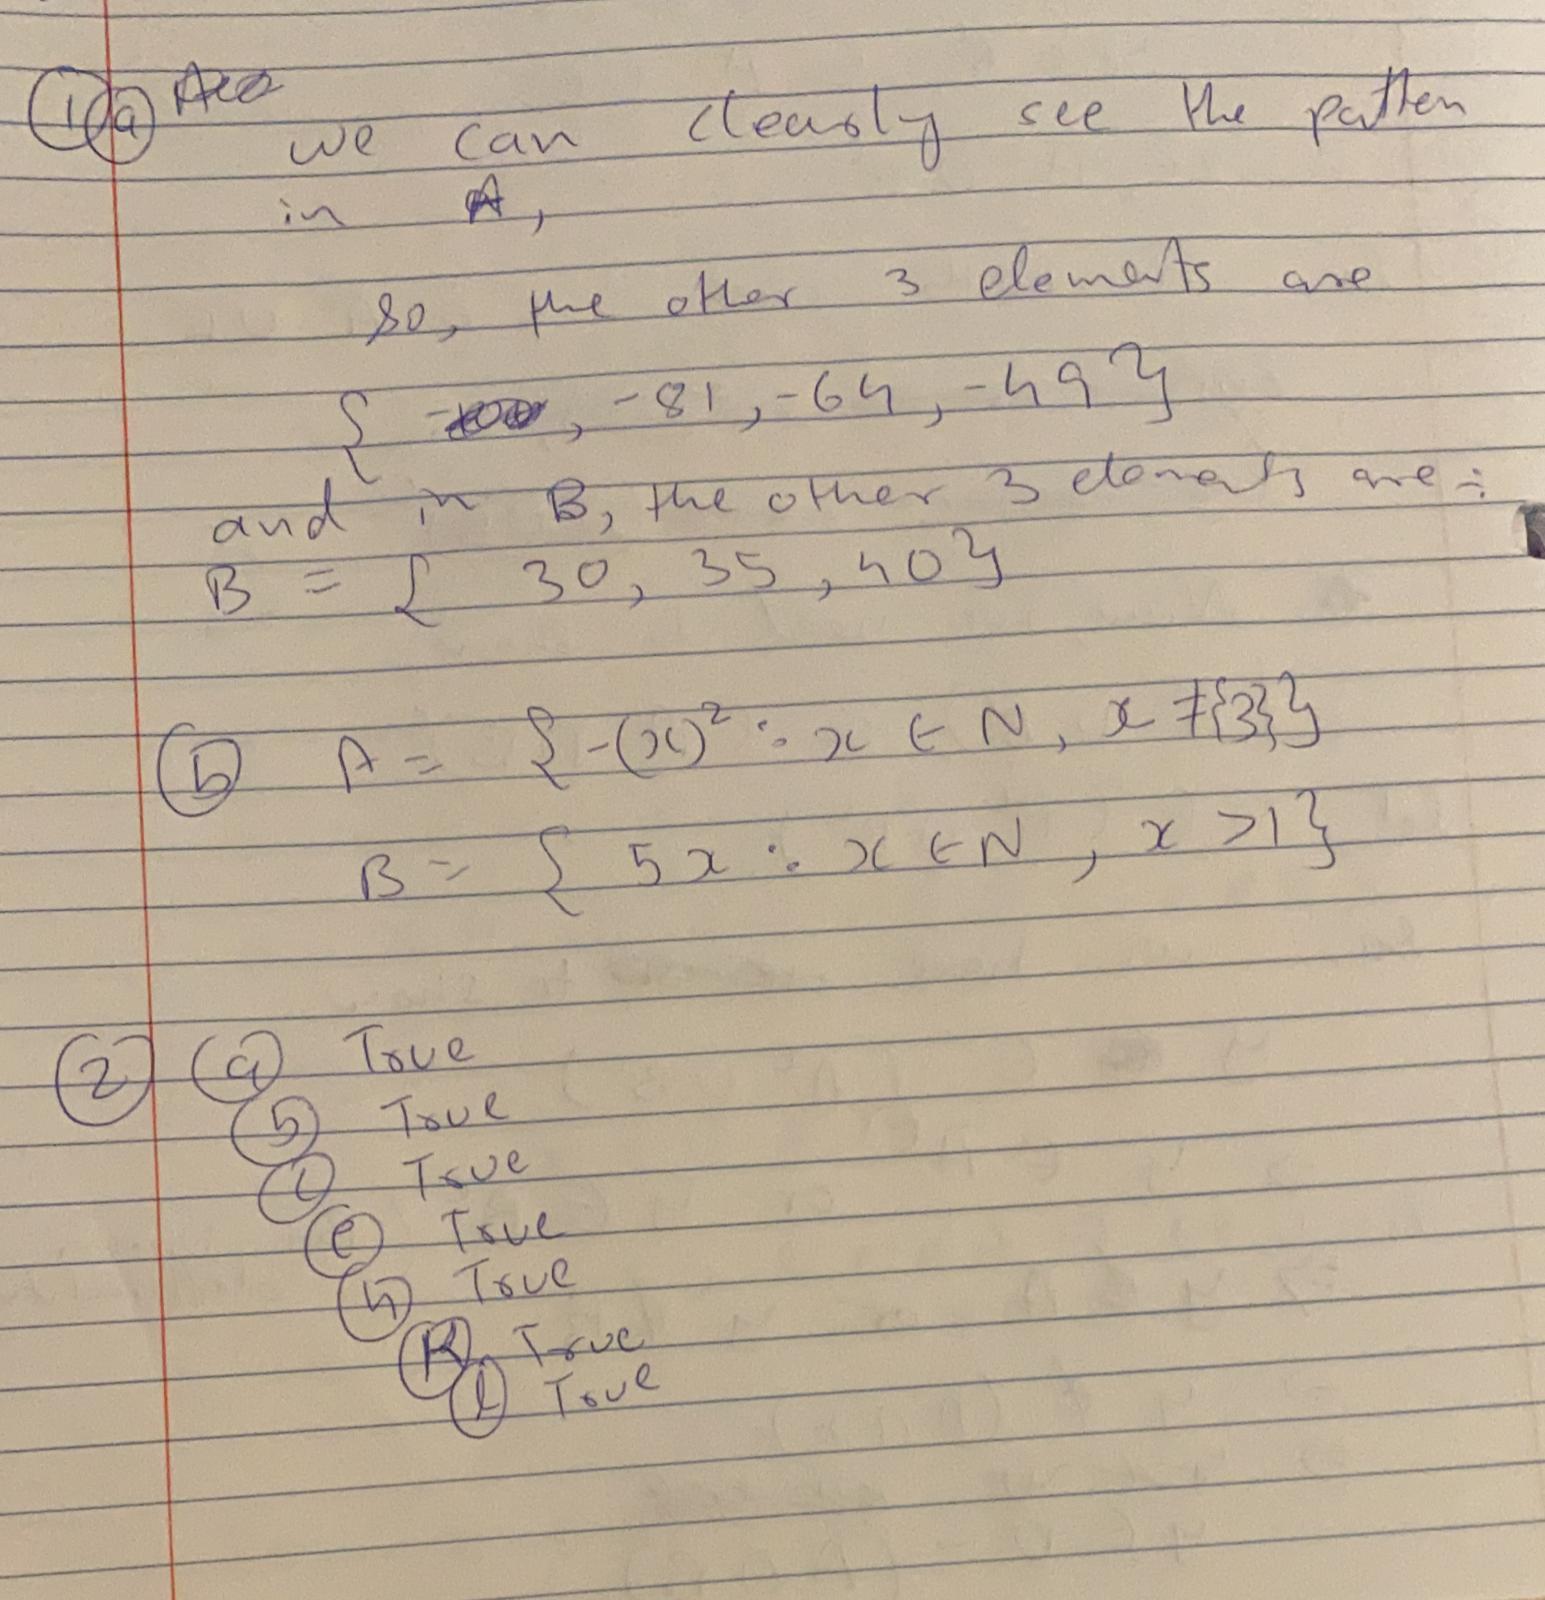 ① ⓐ
we can clearly see the patten
in A,
so, the other 3 elements are
{ , -81, -64, -49}
and in B, the other 3 elements are :
B = { 30, 35, 40}
ⓑ A = { -(x)² : x ∈ N, x ≠ {3}}
B = { 5x : x ∈ N, x > 1}
② ⓐ True
ⓑ True
ⓒ True
ⓔ True
ⓗ True
ⓚ True
ⓛ True